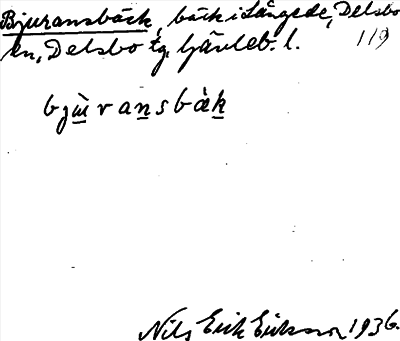 Bjuransbäck, bäck i Långede, Delsbo
en, Delsbo tg, Gävleb. l. 119
bjùransbàk
Nils Erik Erikson 1936.